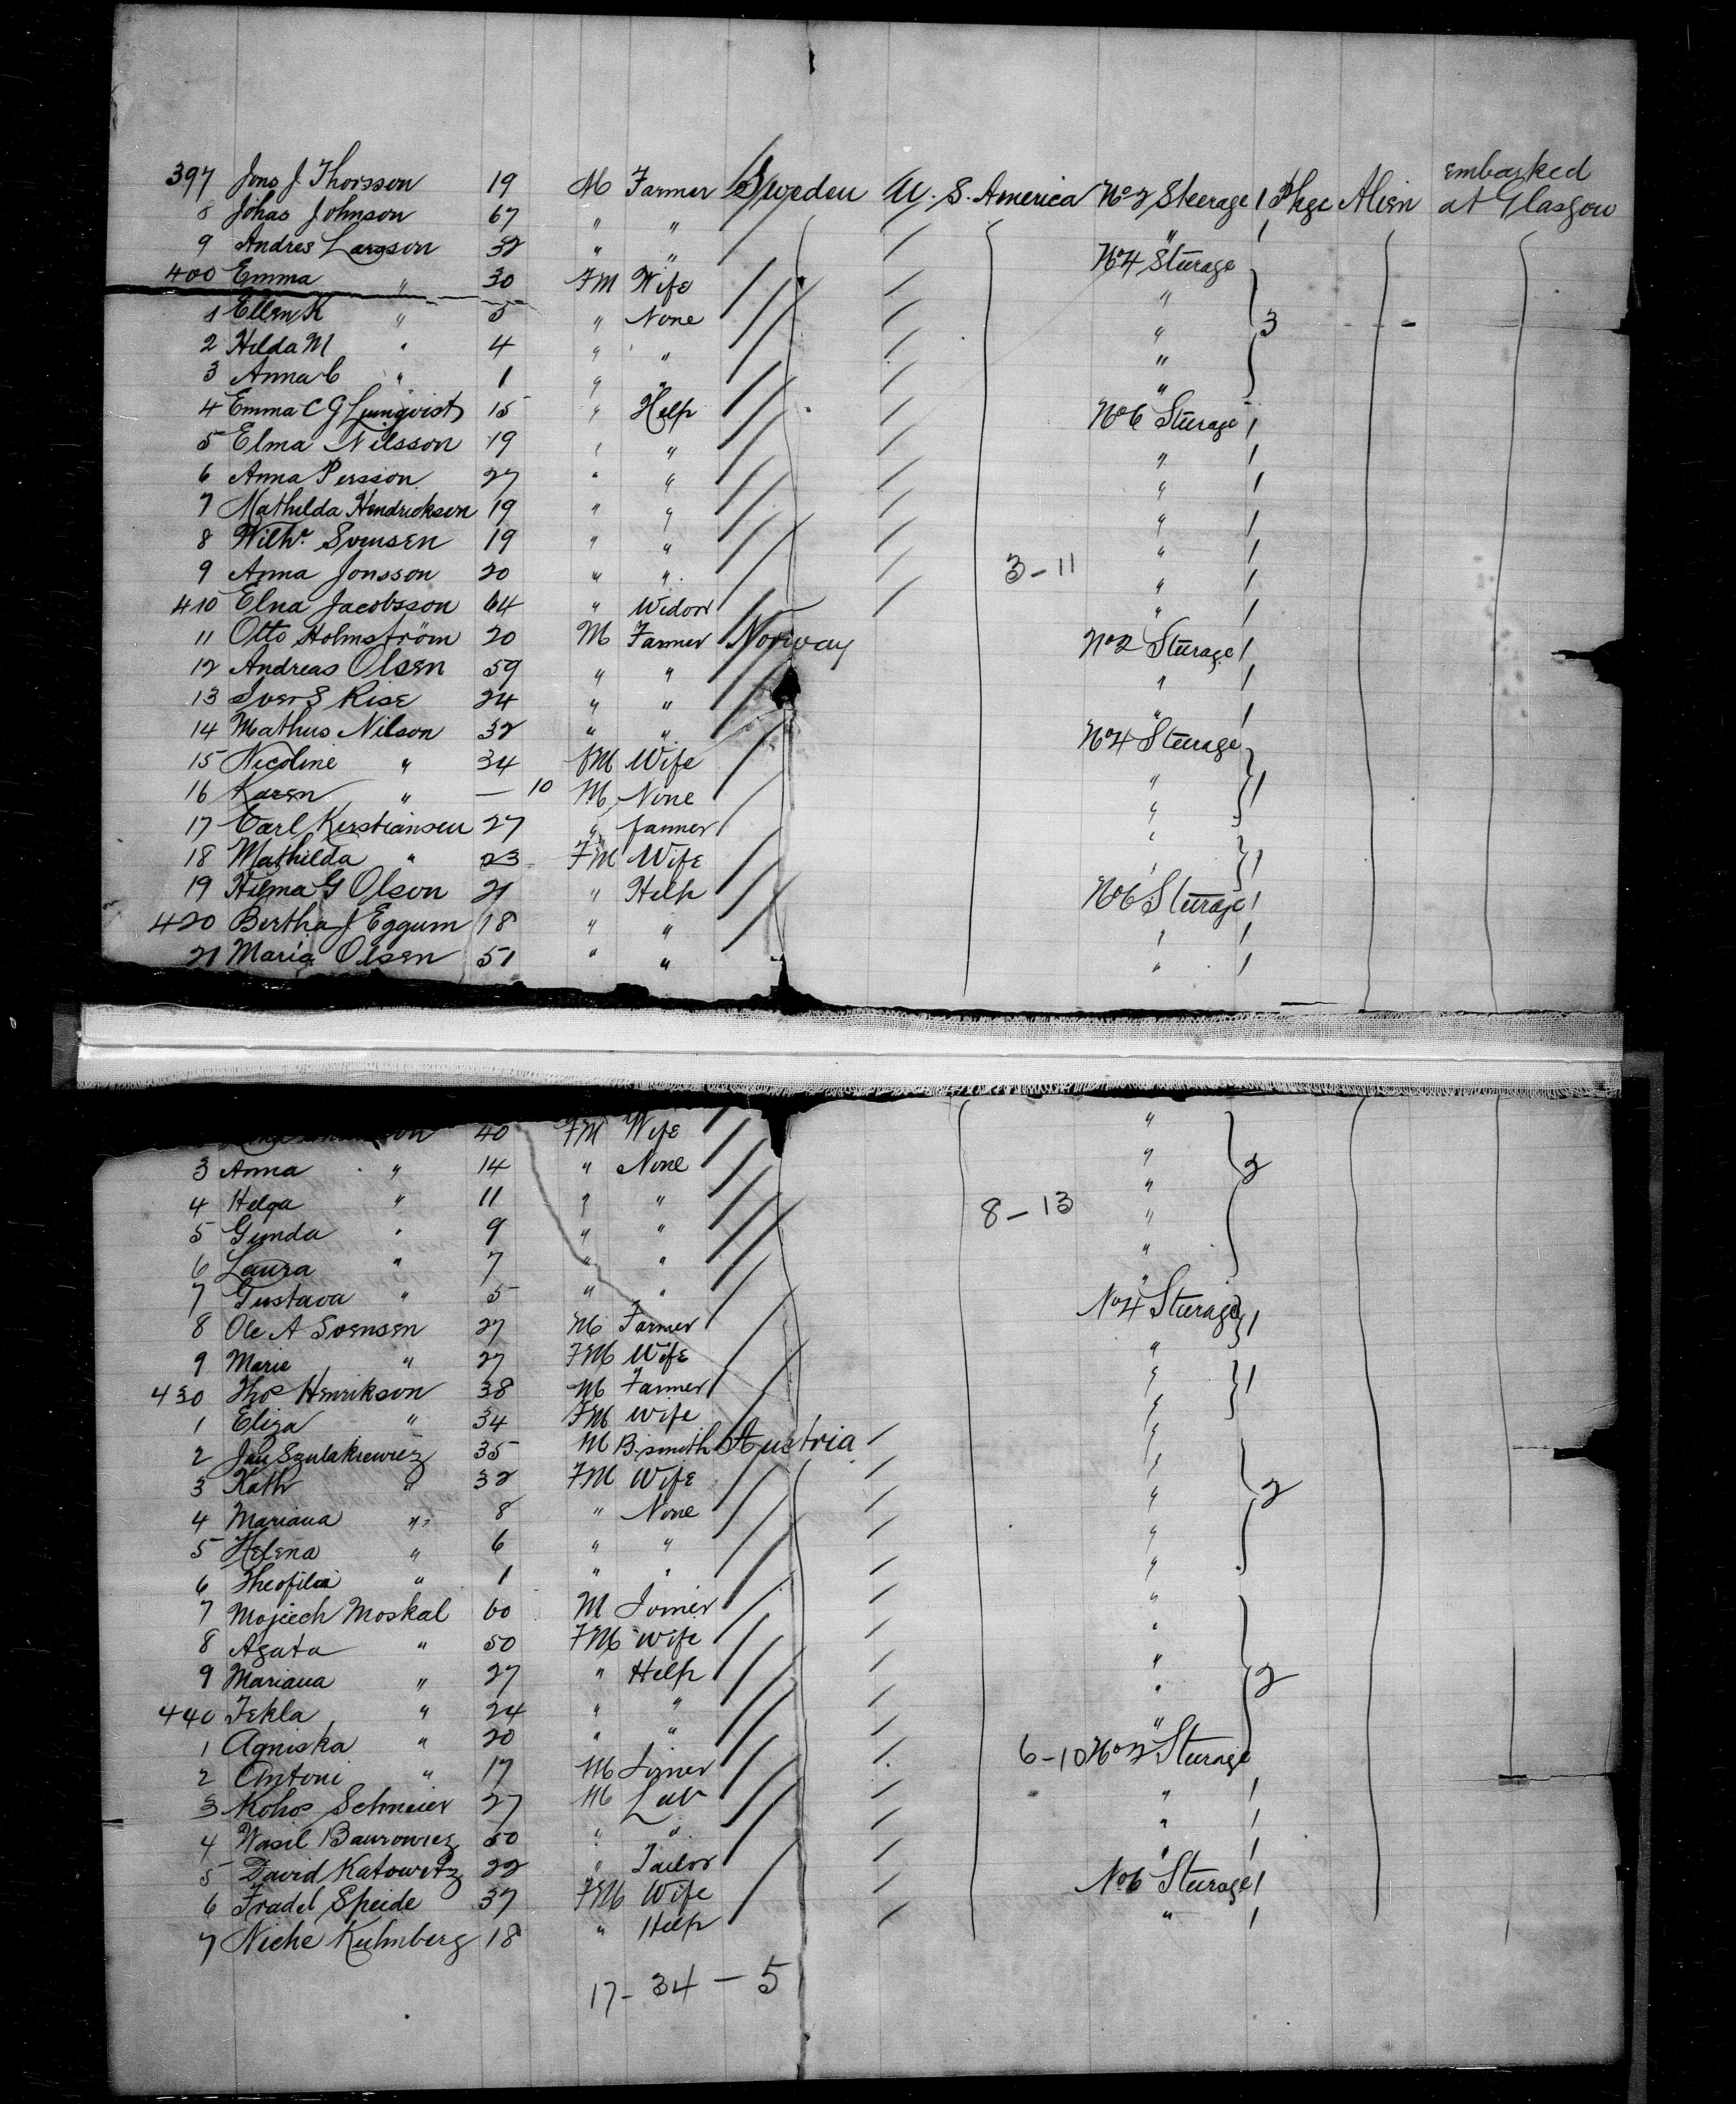 397 Jons J Thorsson 19 M Farmer Sweden U. S. America No 2 Steerage 1 Pkge Alien embarked at Glasgow
8 Johas Johnson 67 " " " 1
9 Andres Larsson 32 " " No 4 Steerage
400 Emma " 30 FM Wife "
1 Ellen K " 5 " None " 3
2 Hilda M " 4 " " "
3 Anna C " 1 " " "
4 Emma C G Lunqvist 15 " Help No 6 Steerage 1
5 Elma Nilsson 19 " " " 1
6 Anna Persson 27 " " " 1
7 Mathilda Hendrickson 19 " " " 1
8 Wilha Svensen 19 " " " 1
9 Anna Jonsson 20 " " 3-11 " 1
410 Elna Jacobsson 64 " Widow " 1
11 Otto Holmström 20 M Farmer Norway No 2 Steerage 1
12 Andreas Olsen 59 " " " 1
13 Iver S Rise 24 " " " 1
14 Mathus Nilson 32 " " No 4 Steerage
15 Nicoline " 34 FM Wife " 1
16 Karen " — 10 M None "
17 Carl Kerstiansen 27 " farmer "
18 Mathilda " 23 FM Wife " 1
19 Hilma G Olson 21 " Help No 6 Steerage 1
420 Bertha J Eggum 18 " " " 1
21 Maria Olsen 51 " " " 1
40 FM Wife "
3 Anna " 14 " None " 2
4 Helga " 11 " " 8-13 "
5 Gunda " 9 " " "
6 Laura " 7 " " "
7 Gustava " 5 " " "
8 Ole A Svensen 27 M Farmer No 4 Steerage 1
9 Marie " 27 FM Wife "
430 Thos Henrikson 38 M Farmer " 1
1 Eliza " 34 FM Wife "
2 Jan Szulakiewicz 35 M B.smith Austria "
3 Kath " 32 FM Wife " 2
4 Mariana " 8 " None "
5 Helena " 6 " " "
6 Theofilia " 1 " " "
7 Mojiech Moskal 60 M Joiner "
8 Agata " 50 FM Wife "
9 Mariana " 27 " Help " 2
440 Tekla " 24 " " "
1 Agniska " 20 " " "
2 Antoni " 17 M Joiner 6-10 No 2 Steerage
3 Schmeier 27 M Lab " 1
4 Wasil Baurowicz 50 " " " 1
5 David Katowitz 22 " Tailor " 1
6 Fradel Speide 37 FM Wife No 6 Steerage 1
7 Niche Kuhnberg 18 " Help " 1
17-34-5